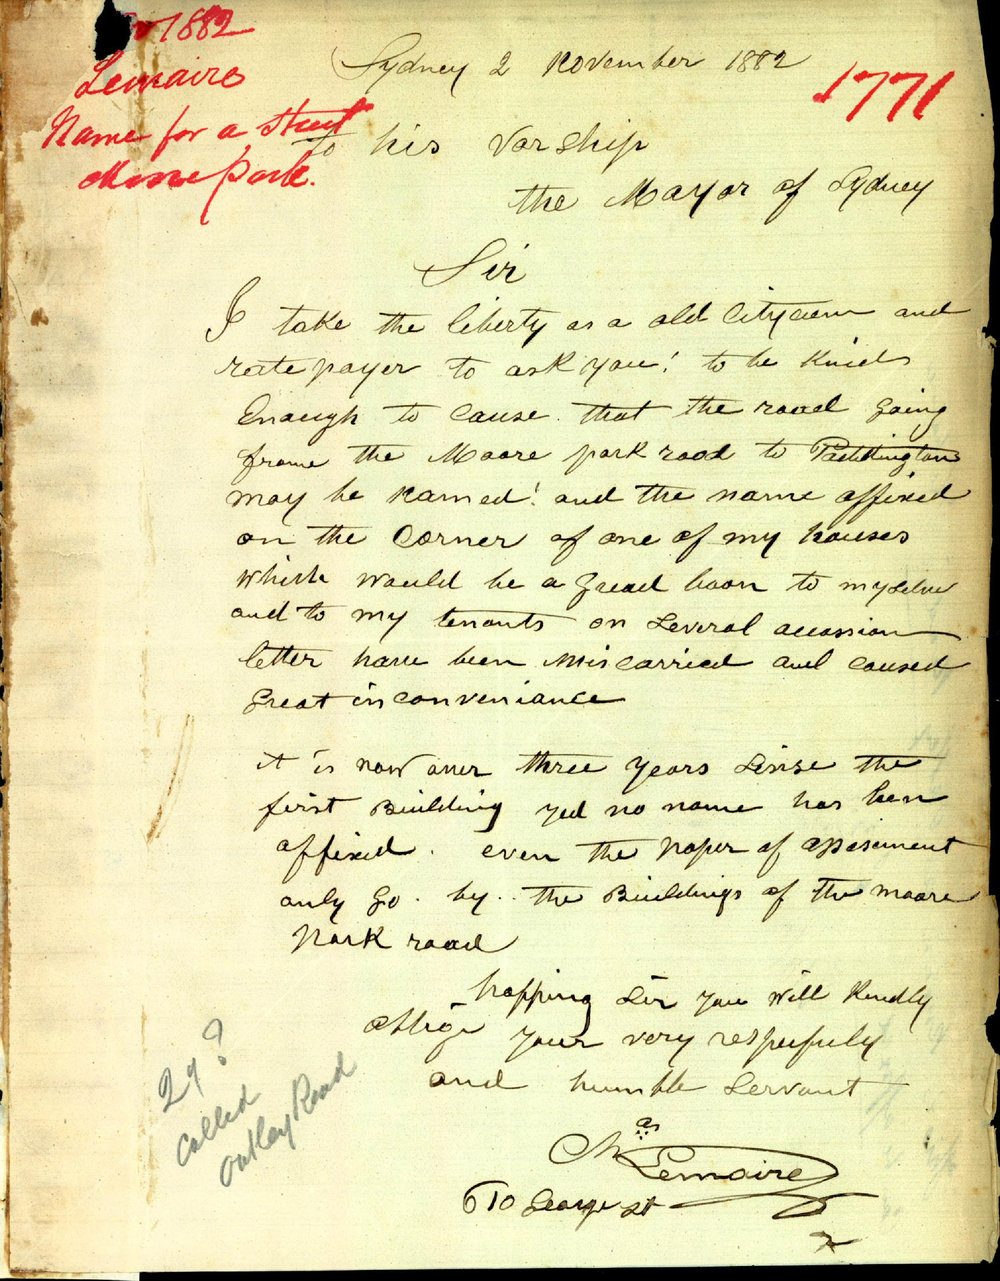 1882
Lemaire
Name for a Street
Moore Park.
1771
Sydney 2 November 1882
To his Vorship
the Mayor of Sydney
Sir
I take the liberty as a old Cityzen and
rate payer to ask you! to be Kind
Enough to Cause. that the road going
frome the Moore park road to Paddington
may be named! and the name affixed
on the Corner of one of my houses
which would be a Gread boon to myselve
and to my tenants on Several occassion
letter have been Miscarried and Caused
great inconveniance
it is now over three years Sinse the
first Building yed no name has been
affixed. even the paper of assesement
only Go. by. the Buildings of the Moore
Park road
hopping Sir you Will Kindly
oblige your very respectfuly
and humble Servant
Chas Lemaire
610 George St
29?
Called
Oatley Road